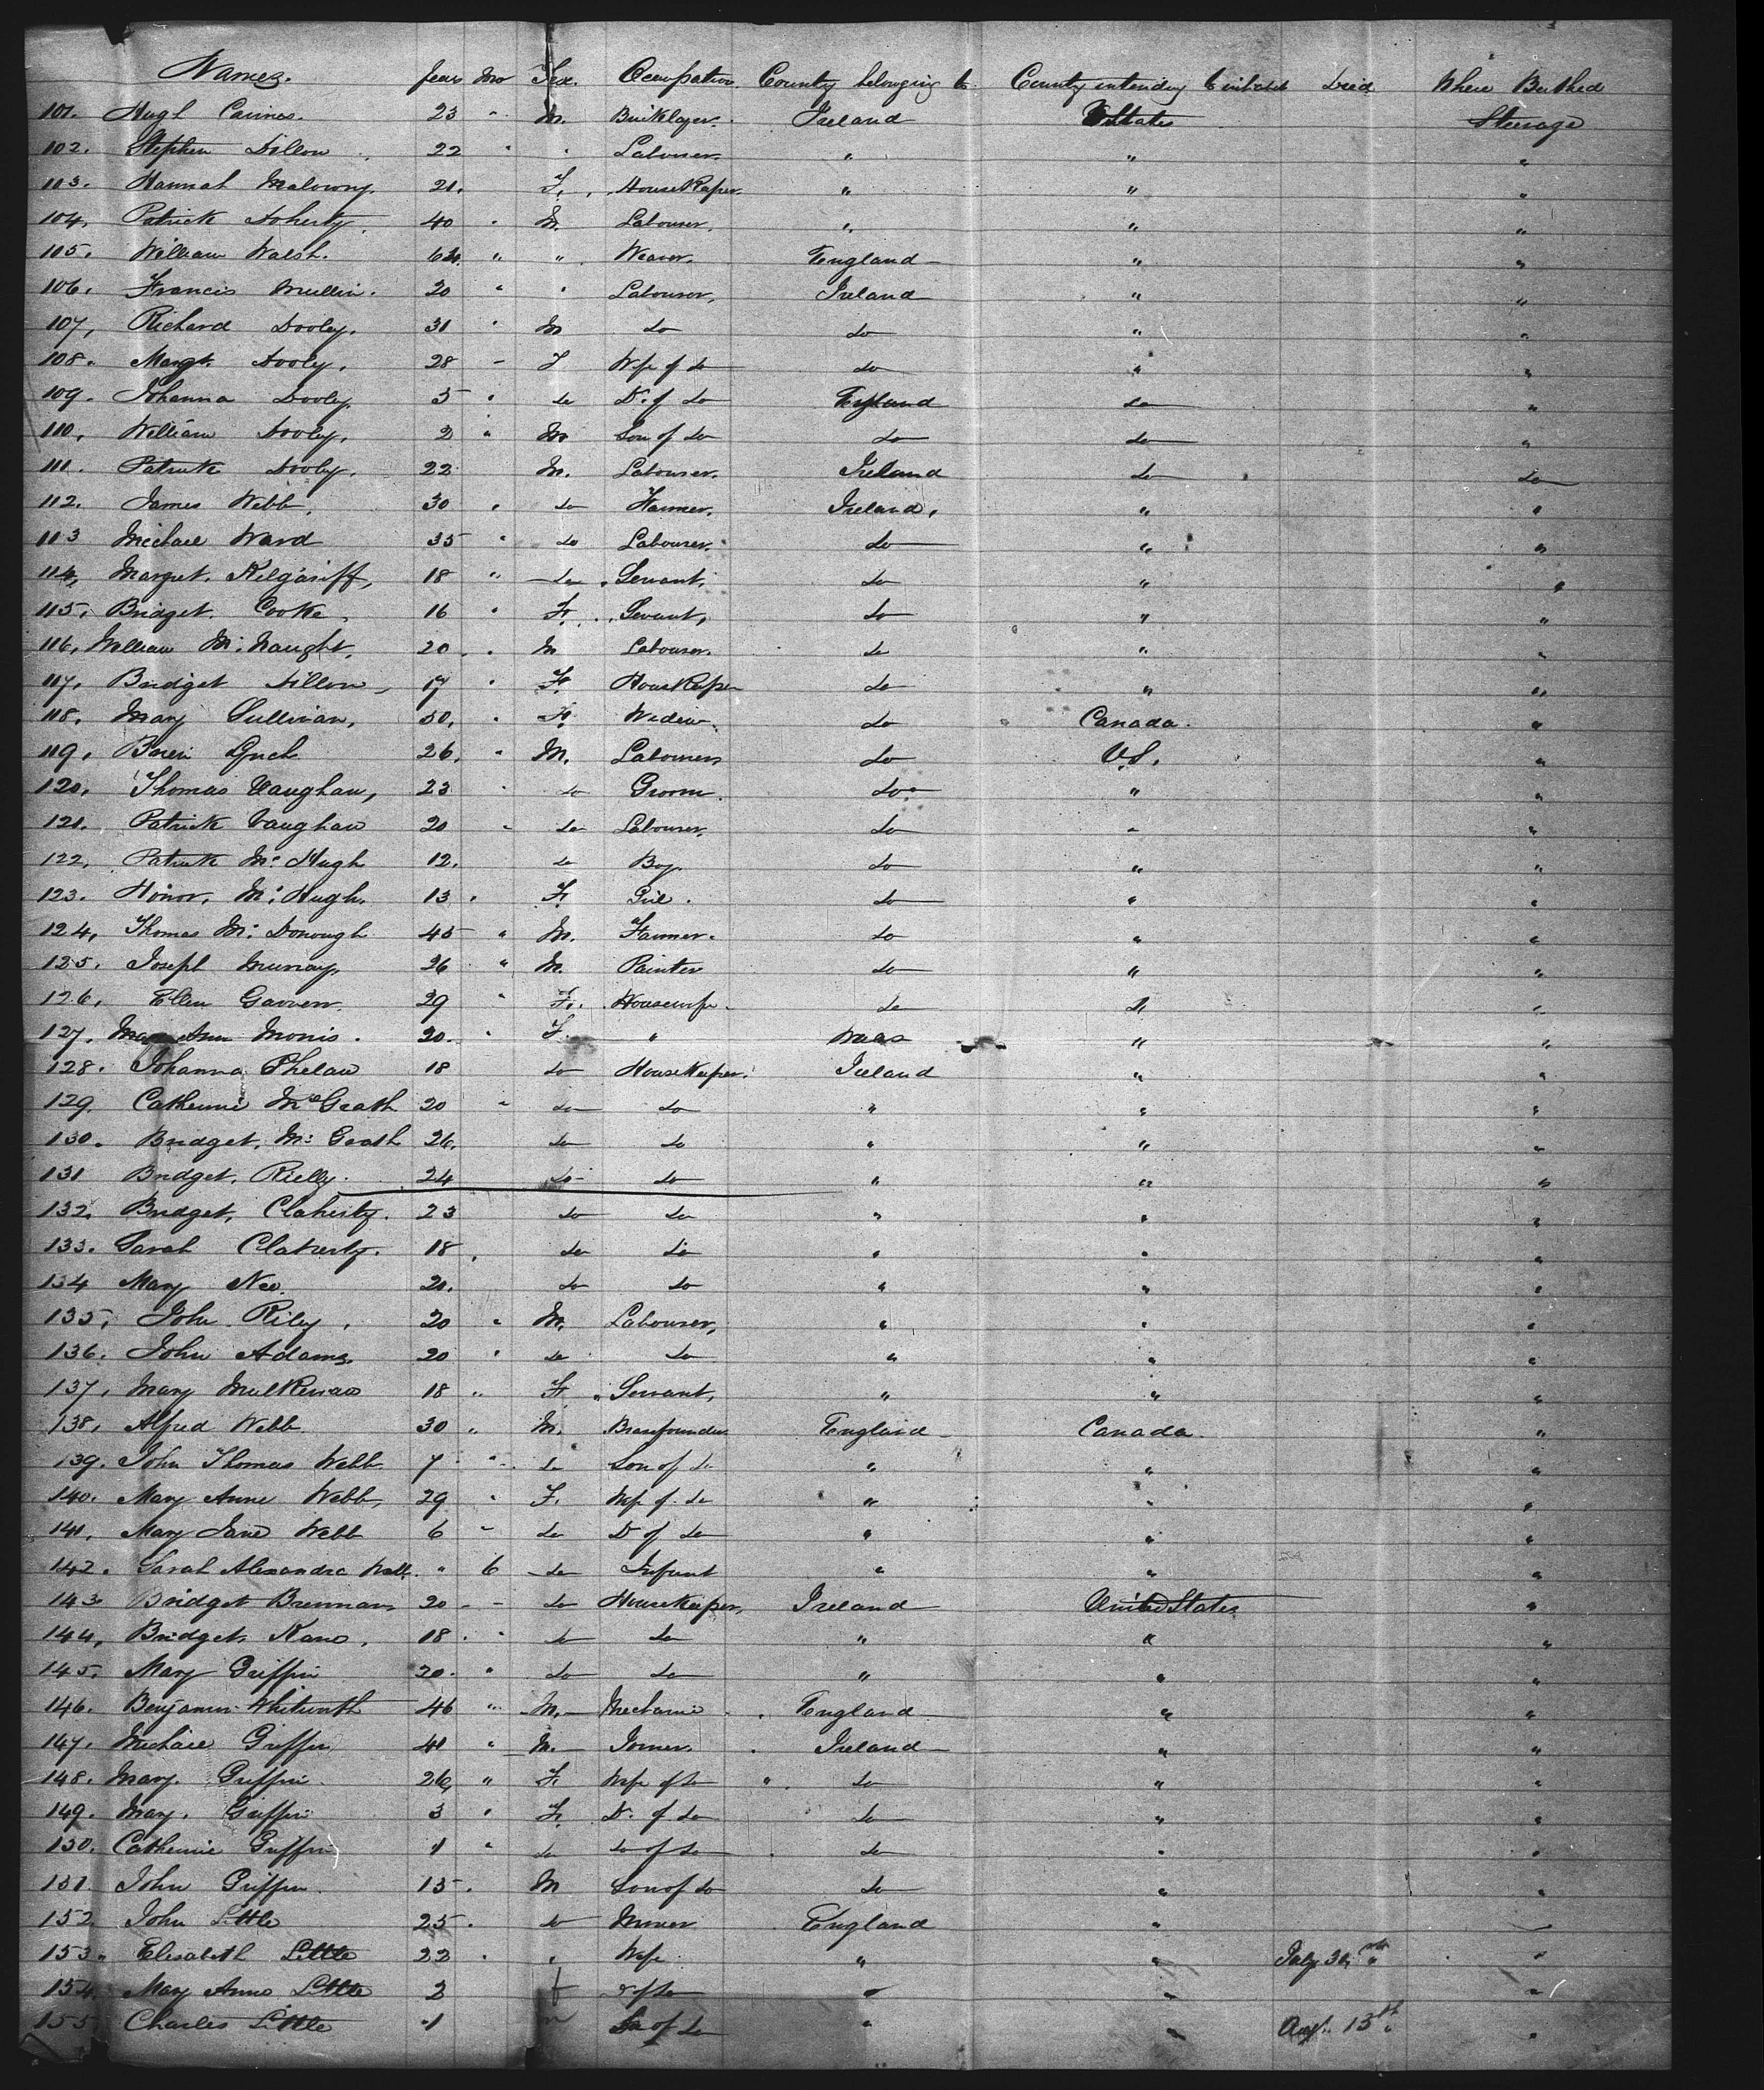 Names. Years Mo Sex. Occupation. Country belonging to. Country intending to inhabit Died Where Berthed
101. Hugh 23 " M. Bricklayer. Ireland U States Steerage
102. Stephen Dillon 22 " " Labourer. " " "
103. Hannah Malowny. 21. F. HouseKeper. " " "
104. Patrick Doherty. 40 " M. Labourer. " " "
105. William Walsh. 64. " " Weaver. England " "
106. Francis Mullin. 20 " " Labourer, Ireland " "
107, Richard Dooley. 31 " M do do " "
108. Margt. Dooly. 28 - F Wife of do do " "
109. Johanna Dooly. 5 " do D. of do England do "
110. William Dooly. 2 " M Son of do do do "
111. Patrick Dooly. 22 M. Labourer. Ireland do do
112. James Webb. 30 " do Farmer. Ireland. " "
113 Michael Ward 35 " do Labourer. do " "
114, Margret. Kilgariff, 18 " do Servant. do " "
115. Bridget. Cooke. 16 " F. Servant, do " "
116, William Mc Naught. 20. " M Labourer. do " "
117, Bridget Dillon, 17 " F. HouseKeper do " "
118. Mary Sullivan, 50. " F. Widow. do Canada. "
119, Lynch 26. " M. Labourer do U.S. "
120. Thomas Vaughan, 23 " do Groom. do " "
121. Patrick Vaughan 20 " do Labourer. do " "
122, Patrick Mc Hugh 12. do Boy. do " "
123. Honor. Mc Hugh. 13. F. Girl. do " "
124, Thomas Mc Donough 45 " M. Farmer. do " "
125. Joseph Murray. 26 " M. Painter do " "
126. Ellen 29 " F. Housewife. do " "
127. Mary Ann Morris. 20. " F. " Wales " "
128. Johanna Phelan 18 do HouseKeeper. Ireland " "
129. Catherine McGrath 20 " do do " " "
130. Bridget. Mc Grath 26. do do " " "
131 Bridget. Rielly. 24 do do " " "
132. Bridget. Claherty. 23 do do " " "
133. Sarah Claherty. 18. do do " " "
134 Mary Nee. 20. do do " " "
135. John Riley. 20 " M. Labourer, " " "
136. John Adams. 20 " do do " " "
137, Mary 18 " F. Servant, " " "
138. Alfred Webb 30 " M. Brassfounder England Canada. "
139. John Thomas Webb 7 " do Son of do " " "
140. Mary Anne Webb, 29 " F. Wife of do " " "
141. Mary Jane Webb 6 " do D of do " " "
142. Sarah Alexandra Webb. " 6 do Infant " " "
143 Bridget Brennan 20 - - do HouseKeeper, Ireland United States "
144, Bridget. Kane. 18. " do do " " "
145. Mary Griffin 20. " do do " " "
146. Benjamin Whitworth 46 " M. Mechanic England " "
147. Michael Griffin 41 " M. Joiner. Ireland " "
148. Mary. Griffin. 26, " F. Wife of do do " "
149. Mary. Griffin 3 " F. D. of do do " "
150. Catherine Griffin 1 " do do of do do " "
151. John Griffin. 15. M Son of do do " "
152. John Little 25. do Miner England " "
153. Elisabeth Little 22 " " Wife " " July 30th "
154. Mary Anne Little 2 f d of do " " "
155. Charles Little 1 m Son of do " " Augt. 13th "